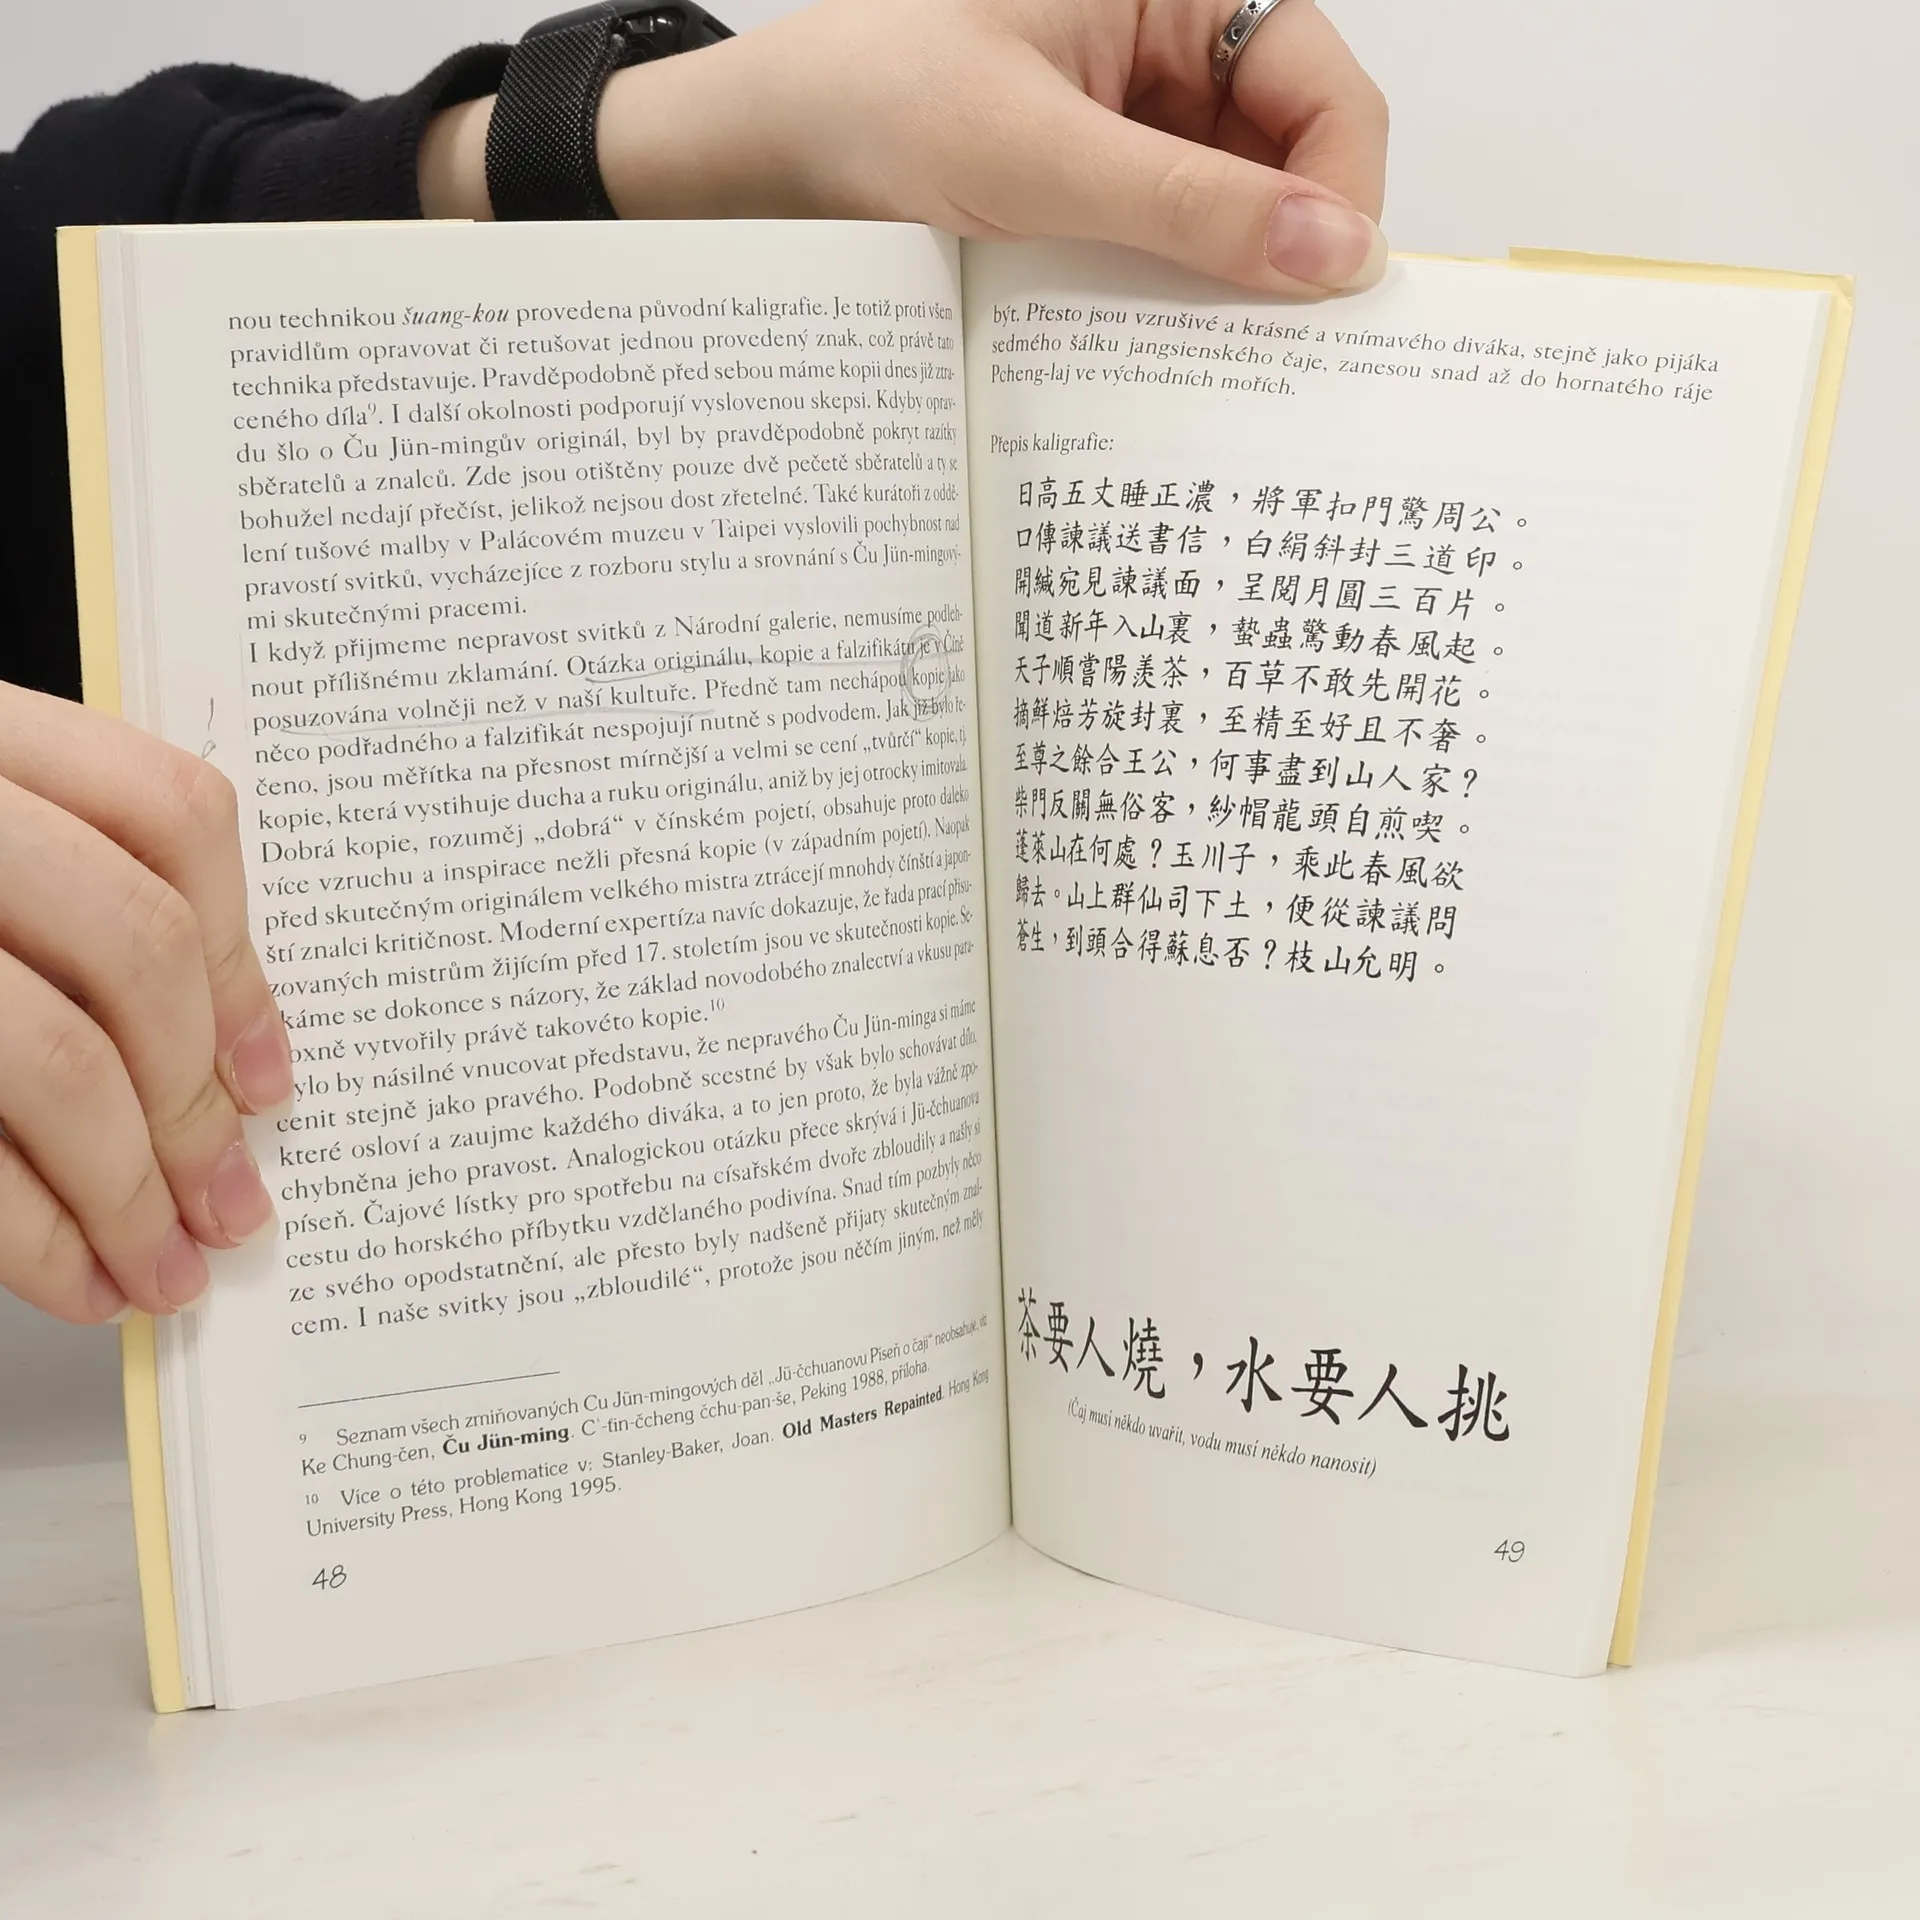 nou technikou šuang-kou provedena původní kaligrafie. Je totiž proti všem
pravidlům opravovat či retušovat jednou provedený znak, což právě tato
technika představuje. Pravděpodobně před sebou máme kopii dnes již ztra-
ceného díla⁹. I další okolnosti podporují vyslovenou skepsi. Kdyby oprav-
du šlo o Ču Jün-mingův originál, byl by pravděpodobně pokryt razítky
sběratelů a znalců. Zde jsou otištěny pouze dvě pečetě sběratelů a ty se
bohužel nedají přečíst, jelikož nejsou dost zřetelné. Také kurátoři z oddě-
lení tušové malby v Palácovém muzeu v Taipei vyslovili pochybnost nad
pravostí svitků, vycházejíce z rozboru stylu a srovnání s Ču Jün-mingový-
mi skutečnými pracemi.
I když přijmeme nepravost svitků z Národní galerie, nemusíme podleh-
nout přílišnému zklamání. Otázka originálu, kopie a falzifikátu je v Číně
posuzována volněji než v naší kultuře. Předně tam nechápou kopie jako
něco podřadného a falzifikát nespojují nutně s podvodem. Jak již bylo ře-
čeno, jsou měřítka na přesnost mírnější a velmi se cení „tvůrčí“ kopie, tj.
kopie, která vystihuje ducha a ruku originálu, aniž by jej otrocky imitovala.
Dobrá kopie, rozuměj „dobrá“ v čínském pojetí, obsahuje proto daleko
více vzruchu a inspirace nežli přesná kopie (v západním pojetí). Naopak
před skutečným originálem velkého mistra ztrácejí mnohdy čínští a japon-
ští znalci kritičnost. Moderní expertíza navíc dokazuje, že řada prací přisu-
zovaných mistrům žijícím před 17. stoletím jsou ve skutečnosti kopie. Se-
káme se dokonce s názory, že základ novodobého znalectví a vkusu para-
oxně vytvořily právě takovéto kopie.¹⁰
ylo by násilné vnucovat představu, že nepravého Ču Jün-minga si máme
cenit stejně jako pravého. Podobně scestné by však bylo schovávat dílo,
které osloví a zaujme každého diváka, a to jen proto, že byla vážně zpo-
chybněna jeho pravost. Analogickou otázku přece skrývá i Jü-čchuanova
píseň. Čajové lístky pro spotřebu na císařském dvoře zbloudily a našly si
cestu do horského příbytku vzdělaného podivína. Snad tím pozbyly něco
ze svého opodstatnění, ale přesto byly nadšeně přijaty skutečným znal-
cem. I naše svitky jsou „zbloudilé“, protože jsou něčím jiným, než měly
9 Seznam všech zmiňovaných Ču Jün-mingových děl „Jü-čchuanovu Píseň o čaji“ neobsahuje, viz
Ke Chung-čen, Ču Jün-ming. C'-fin-čcheng čchu-pan-še, Peking 1988, příloha.
10 Více o této problematice v: Stanley-Baker, Joan. Old Masters Repainted. Hong Kong
University Press, Hong Kong 1995.
48
být. Přesto jsou vzrušivé a krásné a vnímavého diváka, stejně jako pijáka
sedmého šálku jangsienského čaje, zanesou snad až do hornatého ráje
Pcheng-laj ve východních mořích.
Přepis kaligrafie:
日高五丈睡正濃，將軍扣門驚周公。
口傳諫議送書信，白絹斜封三道印。
開緘宛見諫議面，呈閱月圓三百片。
聞道新年入山裏，蟄蟲驚動春風起。
天子順嘗陽羨茶，百草不敢先開花。
摘鮮焙芳旋封裹，至精至好且不奢。
至尊之餘合王公，何事盡到山人家？
柴門反關無俗客，紗帽龍頭自煎喫。
蓬萊山在何處？玉川子，乘此春風欲
歸去。山上群仙司下土，便從諫議問
蒼生，到頭合得蘇息否？枝山允明。
茶要人燒，水要人挑
(Čaj musí někdo uvařit, vodu musí někdo nanosit)
49